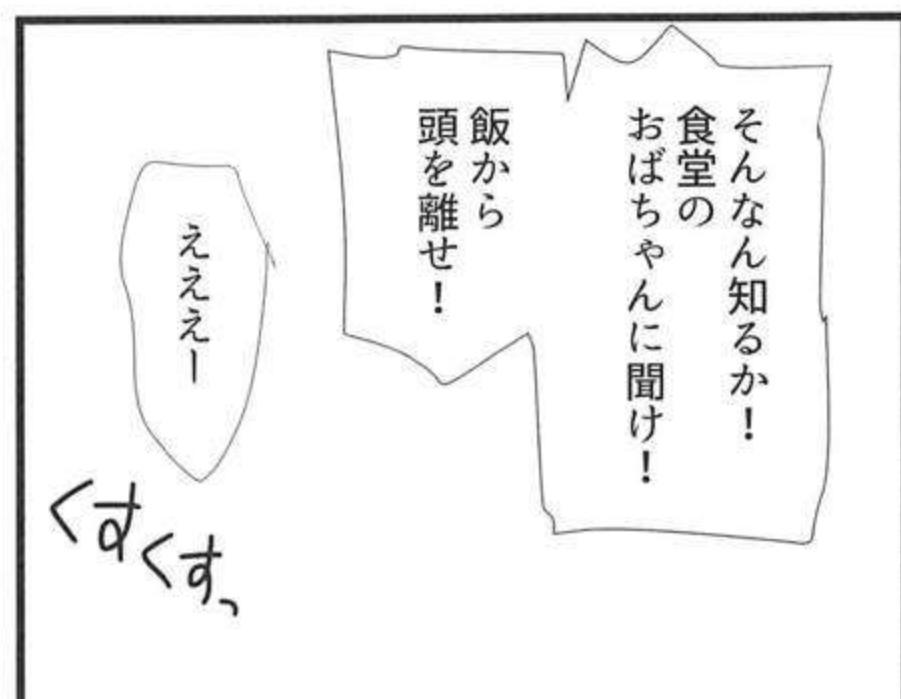 そんなん知るか！
食堂の
おばちゃんに聞け！
飯から
頭を離せ！
えええー
くすくすっ